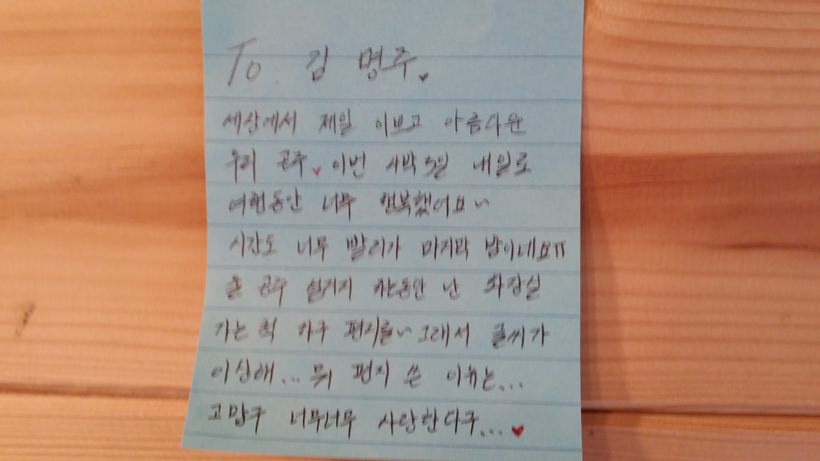 To 김 명주
세상에서 제일 이쁘고 아름다운
우리 공주 이번 4박 5일 내일로
여행동안 너무 행복했어요~
시간도 너무 빨리가 마지막 밤이네요ㅠ
공주 설거지 하는동안 난 화장실
가는 척 하구 편지를~ 그래서 글씨가
이상해... 뭐 편지 쓴 이유는...
고맙구 너무너무 사랑한다구...